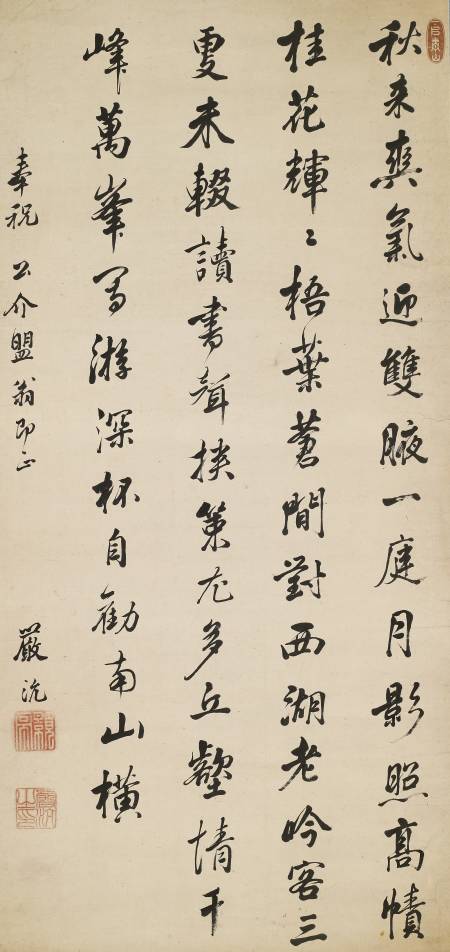 秋来爽氣迎雙腋一庭月影照髙幘
桂花輝〻梧葉蒼閒對西湖老吟客三
更未輟讀書聲挾策尤多丘壑情千
峰萬峯游深杯自勸南山橫
奉祝 公介盟翁即正
嚴沆